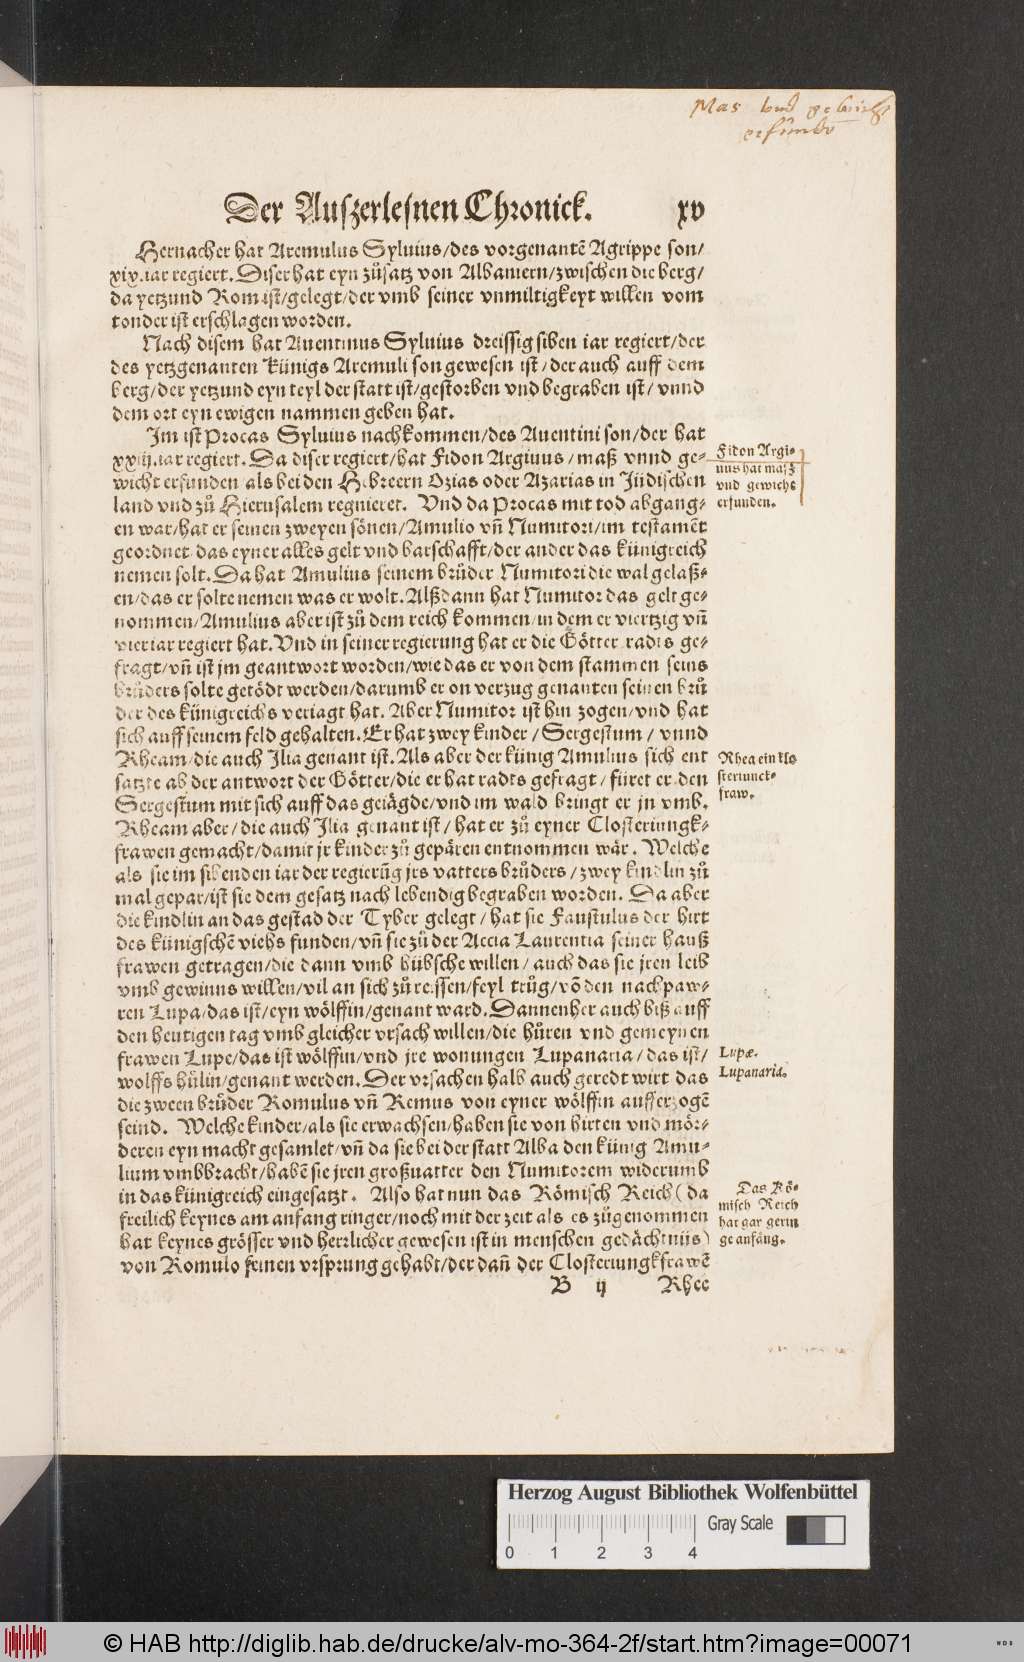 Mas vnd gewicht
erfunden
Der Auſzerleſnen Chronick. xv
Hernacher hat Aremulus Syluius/des vorgenantē Agrippe ſon/
xix.iar regiert. Diſer hat eyn zůſatz von Albaniern/zwiſchen die berg/
da yetzund Rom iſt/gelegt/der vmb ſeiner vnmiltigkeyt willen vom
tonder iſt erſchlagen worden.
Nach diſem hat Auentinus Syluius dreiſſig ſiben iar regiert/der
des yetzgenanten Künigs Aremuli ſon geweſen iſt/der auch auff dem
berg/der yetzund eyn teyl der ſtatt iſt/geſtorben vnd begraben iſt/vnnd
dem ort eyn ewigen nammen geben hat.
Im iſt Procas Syluius nachkommen/des Auentini ſon/der hat
xxiij.iar regiert. Da diſer regiert/hat Fidon Argiuus/maß vnnd ge-
wicht erfunden als bei den Hebreern Ozias oder Azarias in Jüdiſchen
land vnd zů Hieruſalem regnieret. Vnd da Procas mit tod abgang-
en war/hat er ſeinen zweyen ſönen/Amulio vn̄ Numitori/im teſtamēt
geordnet das eyner alles gelt vnd barſchafft/der ander das künigreich
nemen ſolt. Da hat Amulius ſeinem brůder Numitori die wal gelaß-
en/das er ſolte nemen was er wolt. Alßdann hat Numitor das gelt ge-
nommen/Amulius aber iſt zů dem reich kommen/in dem er viertzig vn̄
vier iar regiert hat. Vnd in ſeiner regierung hat er die Götter radts ge-
fragt/vn̄ iſt jm geantwort worden/wie das er von dem ſtammen ſeins
brůders ſolte getödt werden/darumb er on verzug genanten ſeinen brů
der des künigreichs veriagt hat. Aber Numitor iſt hin zogen/vnd hat
ſich auff ſeinem feld gehalten. Er hat zwey kinder/Sergeſtum/vnnd
Rheam/die auch Ilia genant iſt. Als aber der künig Amulius ſich ent
ſatzte ab der antwort der Götter/die er hat radts gefragt/füret er den
Sergeſtum mit ſich auff das geiägde/vnd im wald bringt er jn vmb.
Rheam aber/die auch Ilia genant iſt/hat er zů eyner Cloſteriungk-
frawen gemacht/damit jr kinder zů gepären entnommen wär. Welche
als ſie im ſibenden iar der regierūg jrs vatters brůders/zwey kindlin zů
mal gepar/iſt ſie dem geſatz nach lebendig begraben worden. Da aber
die kindlin an das geſtad der Tyber gelegt/hat ſie Fauſtulus der hirt
des künigſchē viehs funden/vn̄ ſie zů der Accia Laurentia ſeiner hauß
frawen getragen/die dann vmb hübſche willen/auch das ſie jren leib
vmb gewinns willen/vil an ſich zů reiſſen/feyl trůg/vō den nachpaw-
ren Lupa/das iſt/eyn wölffin/genant ward. Dannenher auch biß auff
den heutigen tag vmb gleicher vrſach willen/die hůren vnd gemeynen
frawen Lupe/das iſt wölffin/vnd jre wonungen Lupanaria/das iſt/
wolffs hülin/genant werden. Der vrſachen halb auch geredt wirt das
die zween brůder Romulus vn̄ Remus von eyner wölffin aufferzogē
ſeind. Welche kinder/als ſie erwachſen/haben ſie von hirten vnd mör-
deren eyn macht geſamlet/vn̄ da ſie bei der ſtatt Alba den künig Amu-
lium vmbbracht/habē ſie jren großuatter den Numitorem widerumb
in das künigreich eingeſatzt. Alſo hat nun das Römiſch Reich (da
freilich keynes am anfang ringer/noch mit der zeit als es zůgenommen
hat keynes gröſſer vnd herrlicher geweſen iſt in menſchen gedächtnijs)
von Romulo ſeinen vrſprung gehabt/der dan̄ der Cloſteriungkfrawē
B ij Rhee
Fidon Argi-
uus hat maſz
vnd gewicht
erfunden.
Rhea ein klo
ſteriunck-
fraw.
Lupæ.
Lupanaria.
Das Rö-
miſch Reich
hat gar gerin
ge anfāng.
Herzog August Bibliothek Wolfenbüttel
0 1 2 3 4
Gray Scale
© HAB http://diglib.hab.de/drucke/alv-mo-364-2f/start.htm?image=00071